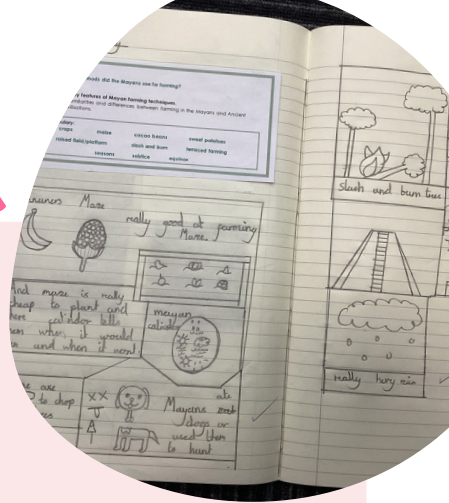 hods did the Mayans use for farming?
y features of Mayan farming techniques.
milarities and differences between farming in the Mayans and Ancient
ilisations.
bulary:
crops maize cacao beans sweet potatoes
raised field/platform slash and burn terraced farming
seasons solstice equinox
Maze
really good at farming
Maze.
and maze is really
cheap to plant and
there calindor tells
when it would
and when it wont.
mayan
axe
to chop
ate
Mayans
dogs or
used them
to hunt
slash and burn trees
really hevy rain